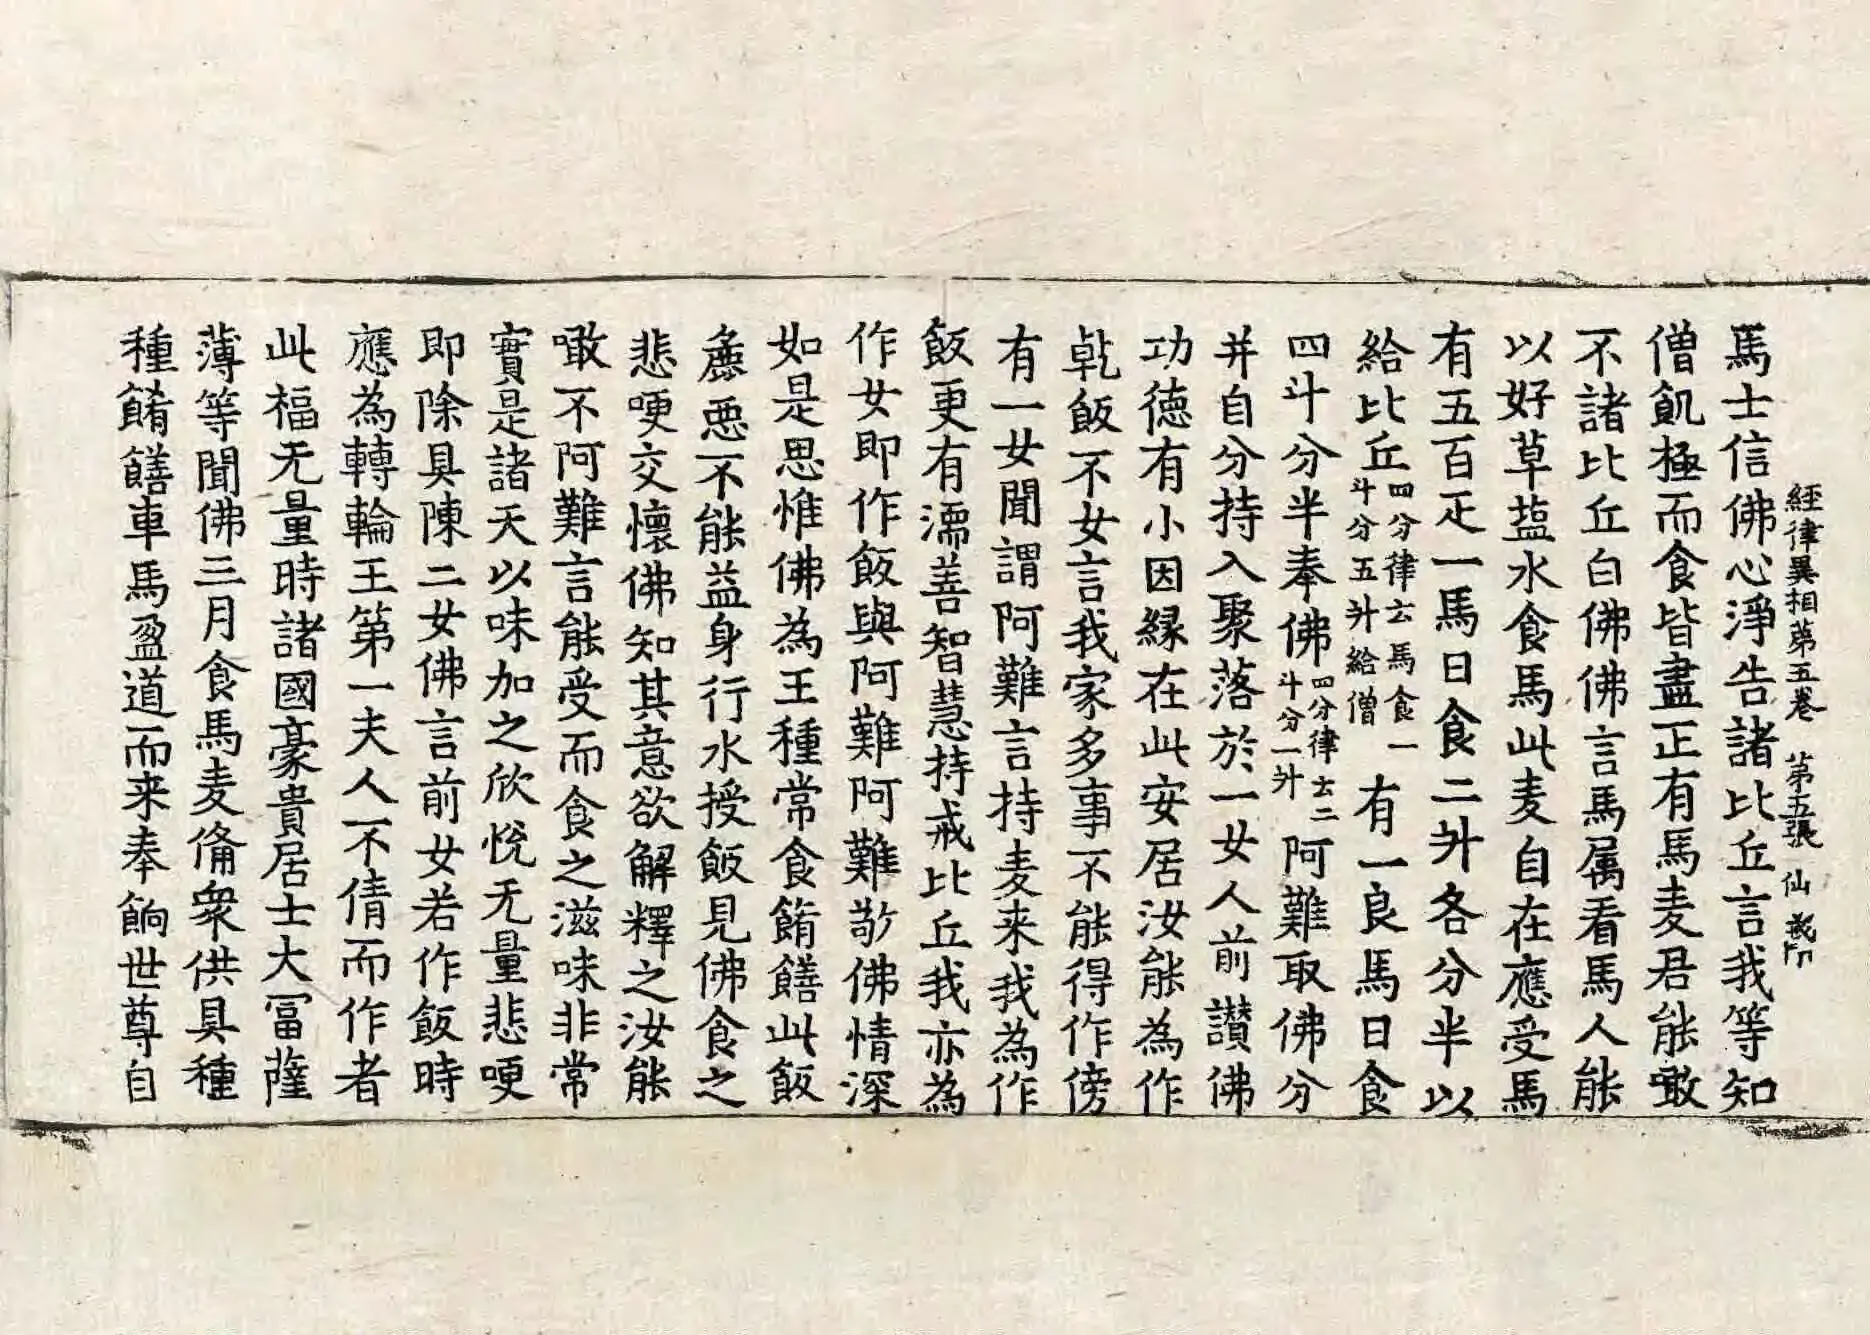 經律異相苐五卷　苐五張　仙
馬士信佛心淨告諸比丘言我等知
僧飢極而食皆盡正有馬麦君能噉
不諸比丘白佛佛言馬属看馬人能
以好草塩水食馬此麦自在應受馬
有五百疋一馬日食二升各分半以
給比丘四分律云馬食一斗分五升給僧有一良馬日食
四斗分半奉佛四分律云二斗分一升阿難取佛分
并自分持入聚落於一女人前讃佛
功德有小因縁在此安居汝能為作
乹飯不女言我家多事不能得作傍
有一女聞謂阿難言持麦来我為作
飯更有濡善智慧持戒比丘我亦為
作女即作飯與阿難阿難敬佛情深
如是思惟佛為王種常食餚饍此飯
麁惡不能益身行水授飯見佛食之
悲哽交懷佛知其意欲解釋之汝能
噉不阿難言能受而食之滋味非常
實是諸天以味加之欣悅无量悲哽
即除具陳二女佛言前女若作飯時
應為轉輪王第一夫人不倩而作者
此福无量時諸國豪貴居士大冨薩
薄等聞佛三月食馬麦俻衆供具種
種餚饍車馬盈道而来奉餉世尊自